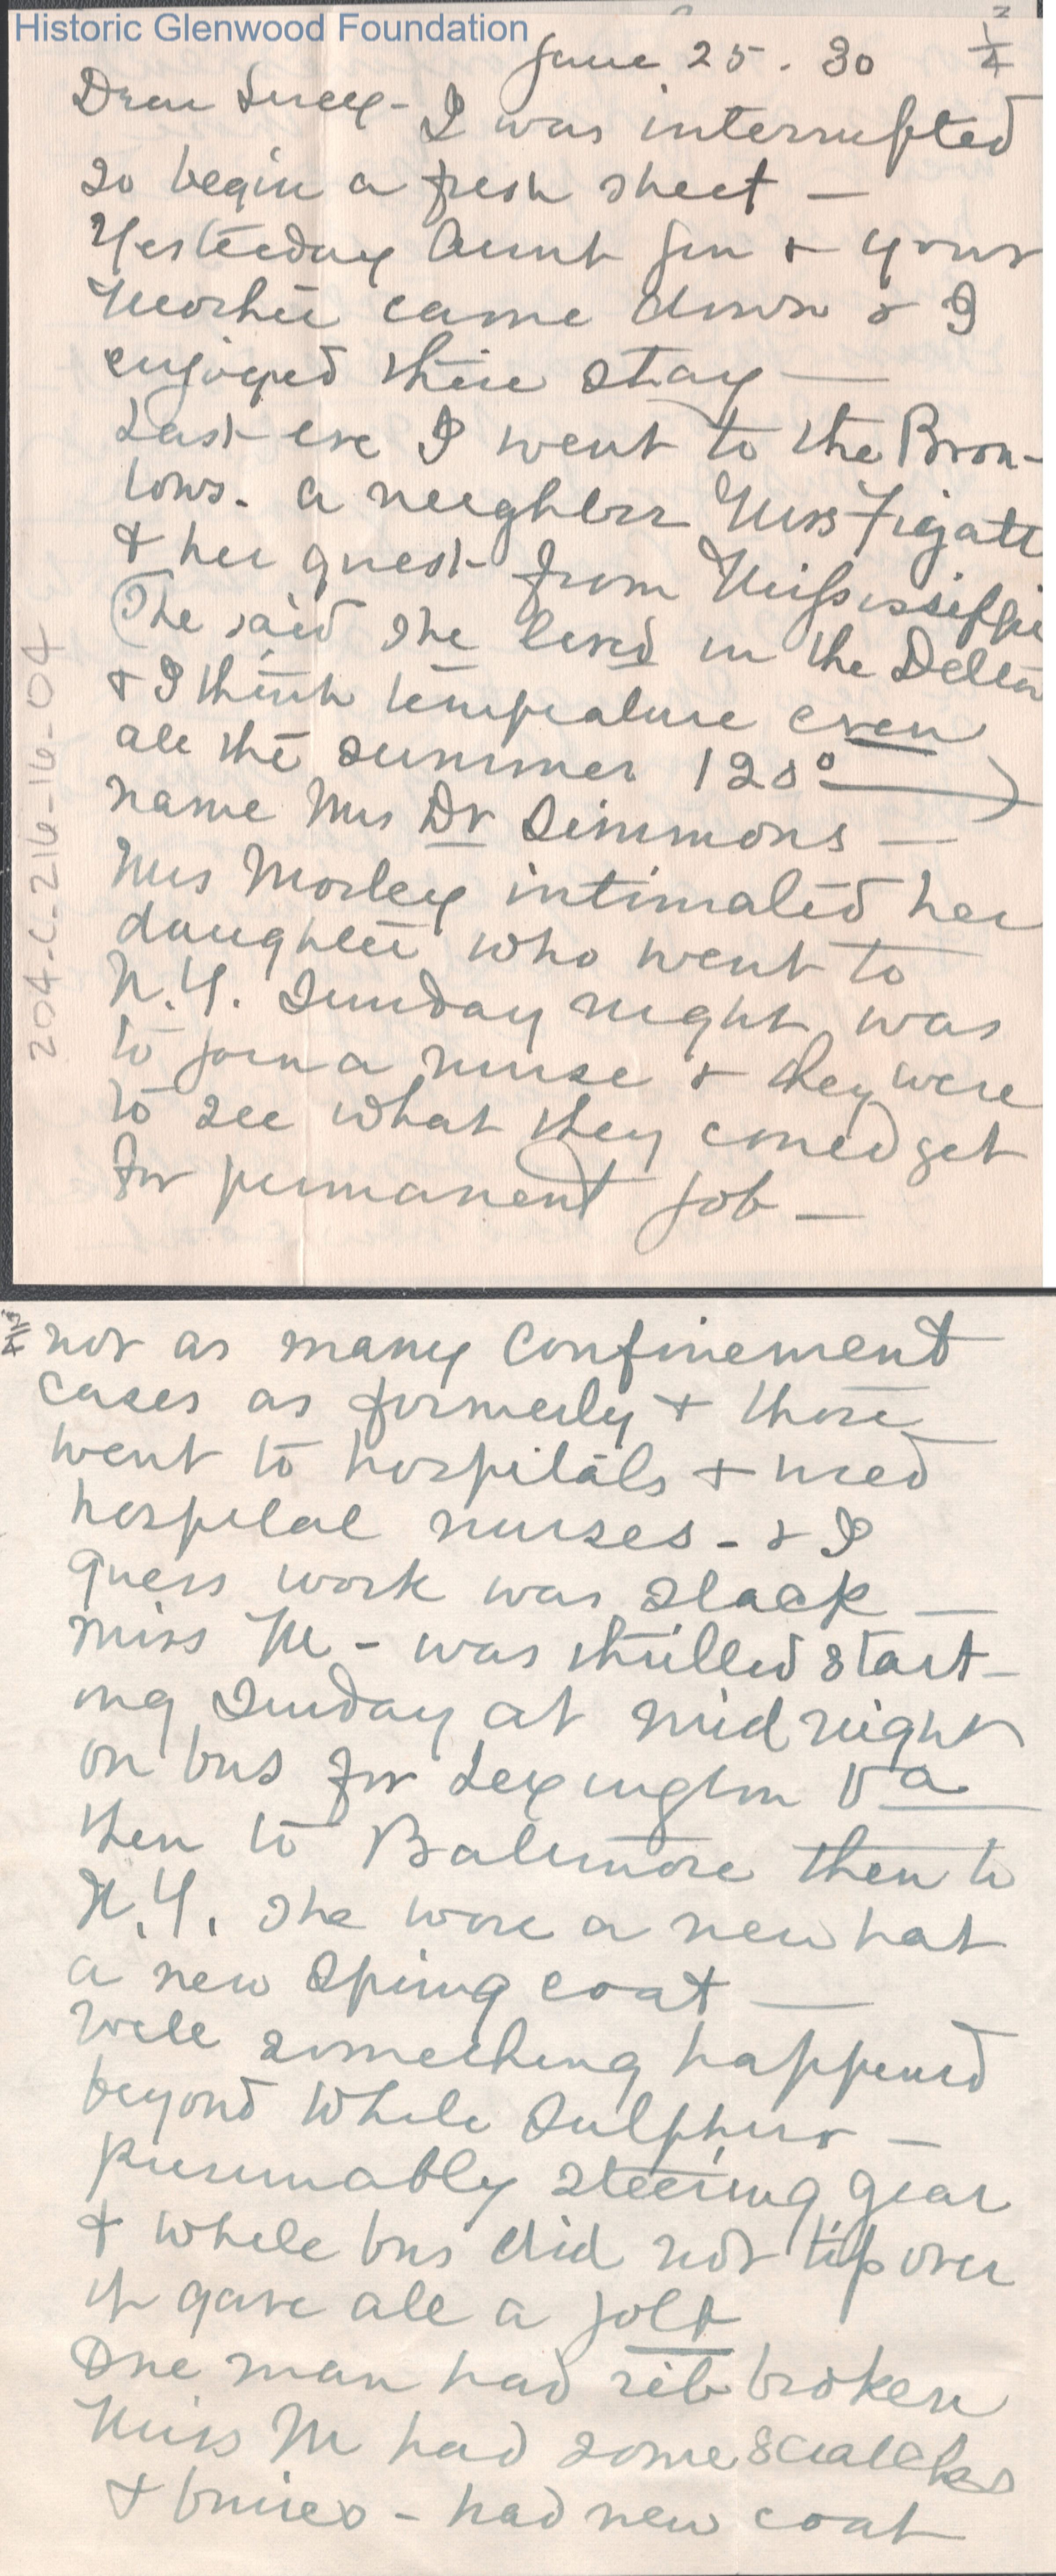 Historic Glenwood Foundation
June 25. 30 1/4
Dear Lucy- I was interrupted
so begin a fresh sheet —
Yesterday Aunt Jen + your
Mother came down & I
enjoyed their stay —
Last eve I went to the Bron-
lows. a neighbor Miss Figatt
+ her guest from Mississippi
(She said she lived in the Delta
+ I think temperature even
all the summer 120° — )
name Mrs Dr Simmons —
Mrs Morley intimated her
daughter who went to
N.Y. Sunday night was
to join a nurse & they were
to see what they could get
for permanent job —
204-C-216-16-04
2/4 not as many confinement
cases as formerly + those
went to hospitals + used
hospital nurses - & I
guess work was slack —
Miss M - was thrilled start-
ing Sunday at midnight
on bus for Lexington Va
then to Baltimore then to
N.Y. She wore a new hat
a new Spring coat —
well something happened
beyond White Sulphur —
presumably steering gear
+ while bus did not tip over
it gave all a jolt
One man had rib broken
Miss M had some scratches
+ bruises - had new coat